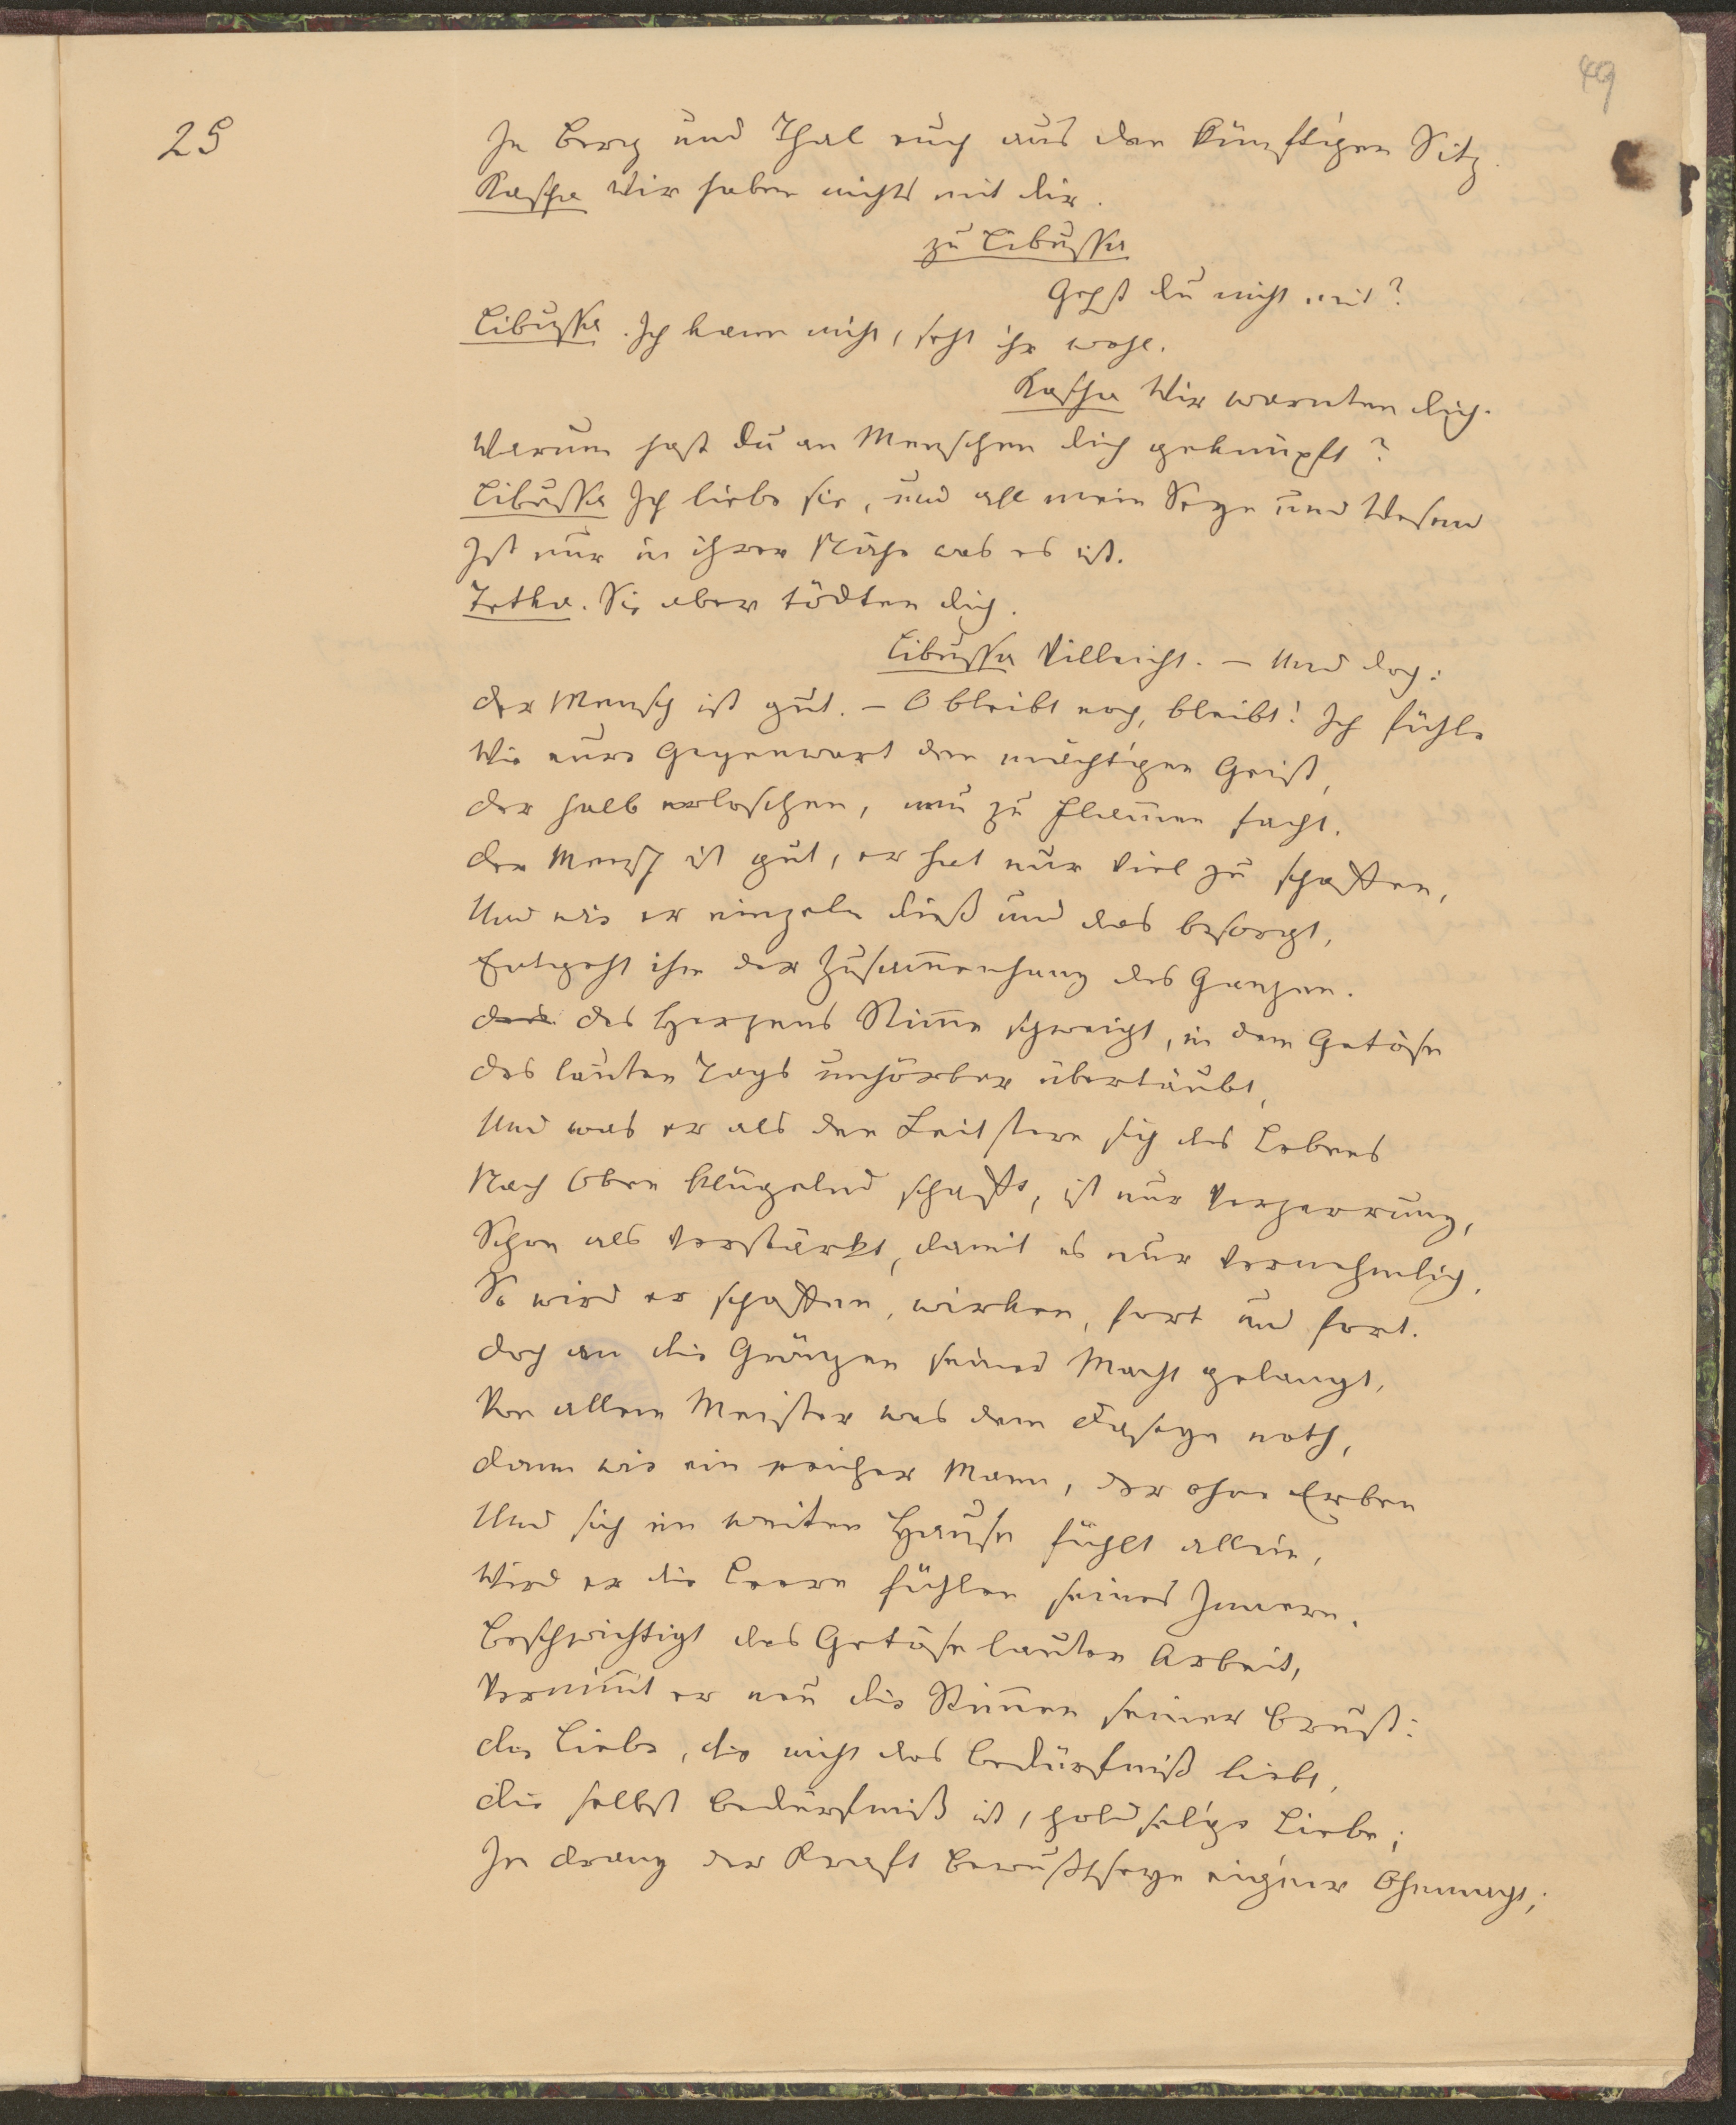 49
25
In Berg und Thal euch aus den künftigen Sitz.
Kascha Wir haben nichts mit dir.
zu Libussa
Gehst du nicht mit?
Libussa. Ich kann nicht, seht ihr wohl.
Kascha Wir warnten dich.
Warum hast du an Menschen dich geknüpft?
Libussa Ich liebe sie, und all mein Seyn und Wesen
Ist nur in ihrer Nähe was es ist.
Tetka. Sie aber tödten dich.
Libussa Villeicht. – Und doch:
Der Mensch ist gut. – O bleibt noch, bleibt! Ich fühle
Wie eure Gegenwart den mächtigen Geist,
Der halb erloschen, neu zu Flam̅en facht.
Der Mensch ist gut, er hat nur viel zu schaffen,
Und wie er einzeln dieß und das besorgt,
Entgeht ihm der Zusam̅enhang des Ganzen.
Des Herzens Stim̅e schweigt, in dem Getöse
Des lauten Tags unhörbar übertäubt,
Und was er als den Leitstern sich des Lebens
Nach Oben klügelnd schafft, ist nur Verzerrung,
Schon als verstärkt, damit es nur vernehmlich.
So wird er schaffen, wirken, fort und fort.
Doch an die Gränzen seiner Macht gelangt,
Von allem Meister was dem Daseyn noth,
Dann wie ein reicher Mann, der ohne Erben
Und sich im weiten Hause fühlt allein,
Wird er die Leere fühlen seines Innern.
Beschwichtigt das Getöse lauter Arbeit,
Vernim̅t er neu die Stim̅en seiner Brust:
Die Liebe, die nicht das Bedürfniß liebt,
Die selbst Bedürfniß ist, holdselge Liebe;
Im Drang der Kraft Bewußtseyn eigner Ohnmacht;